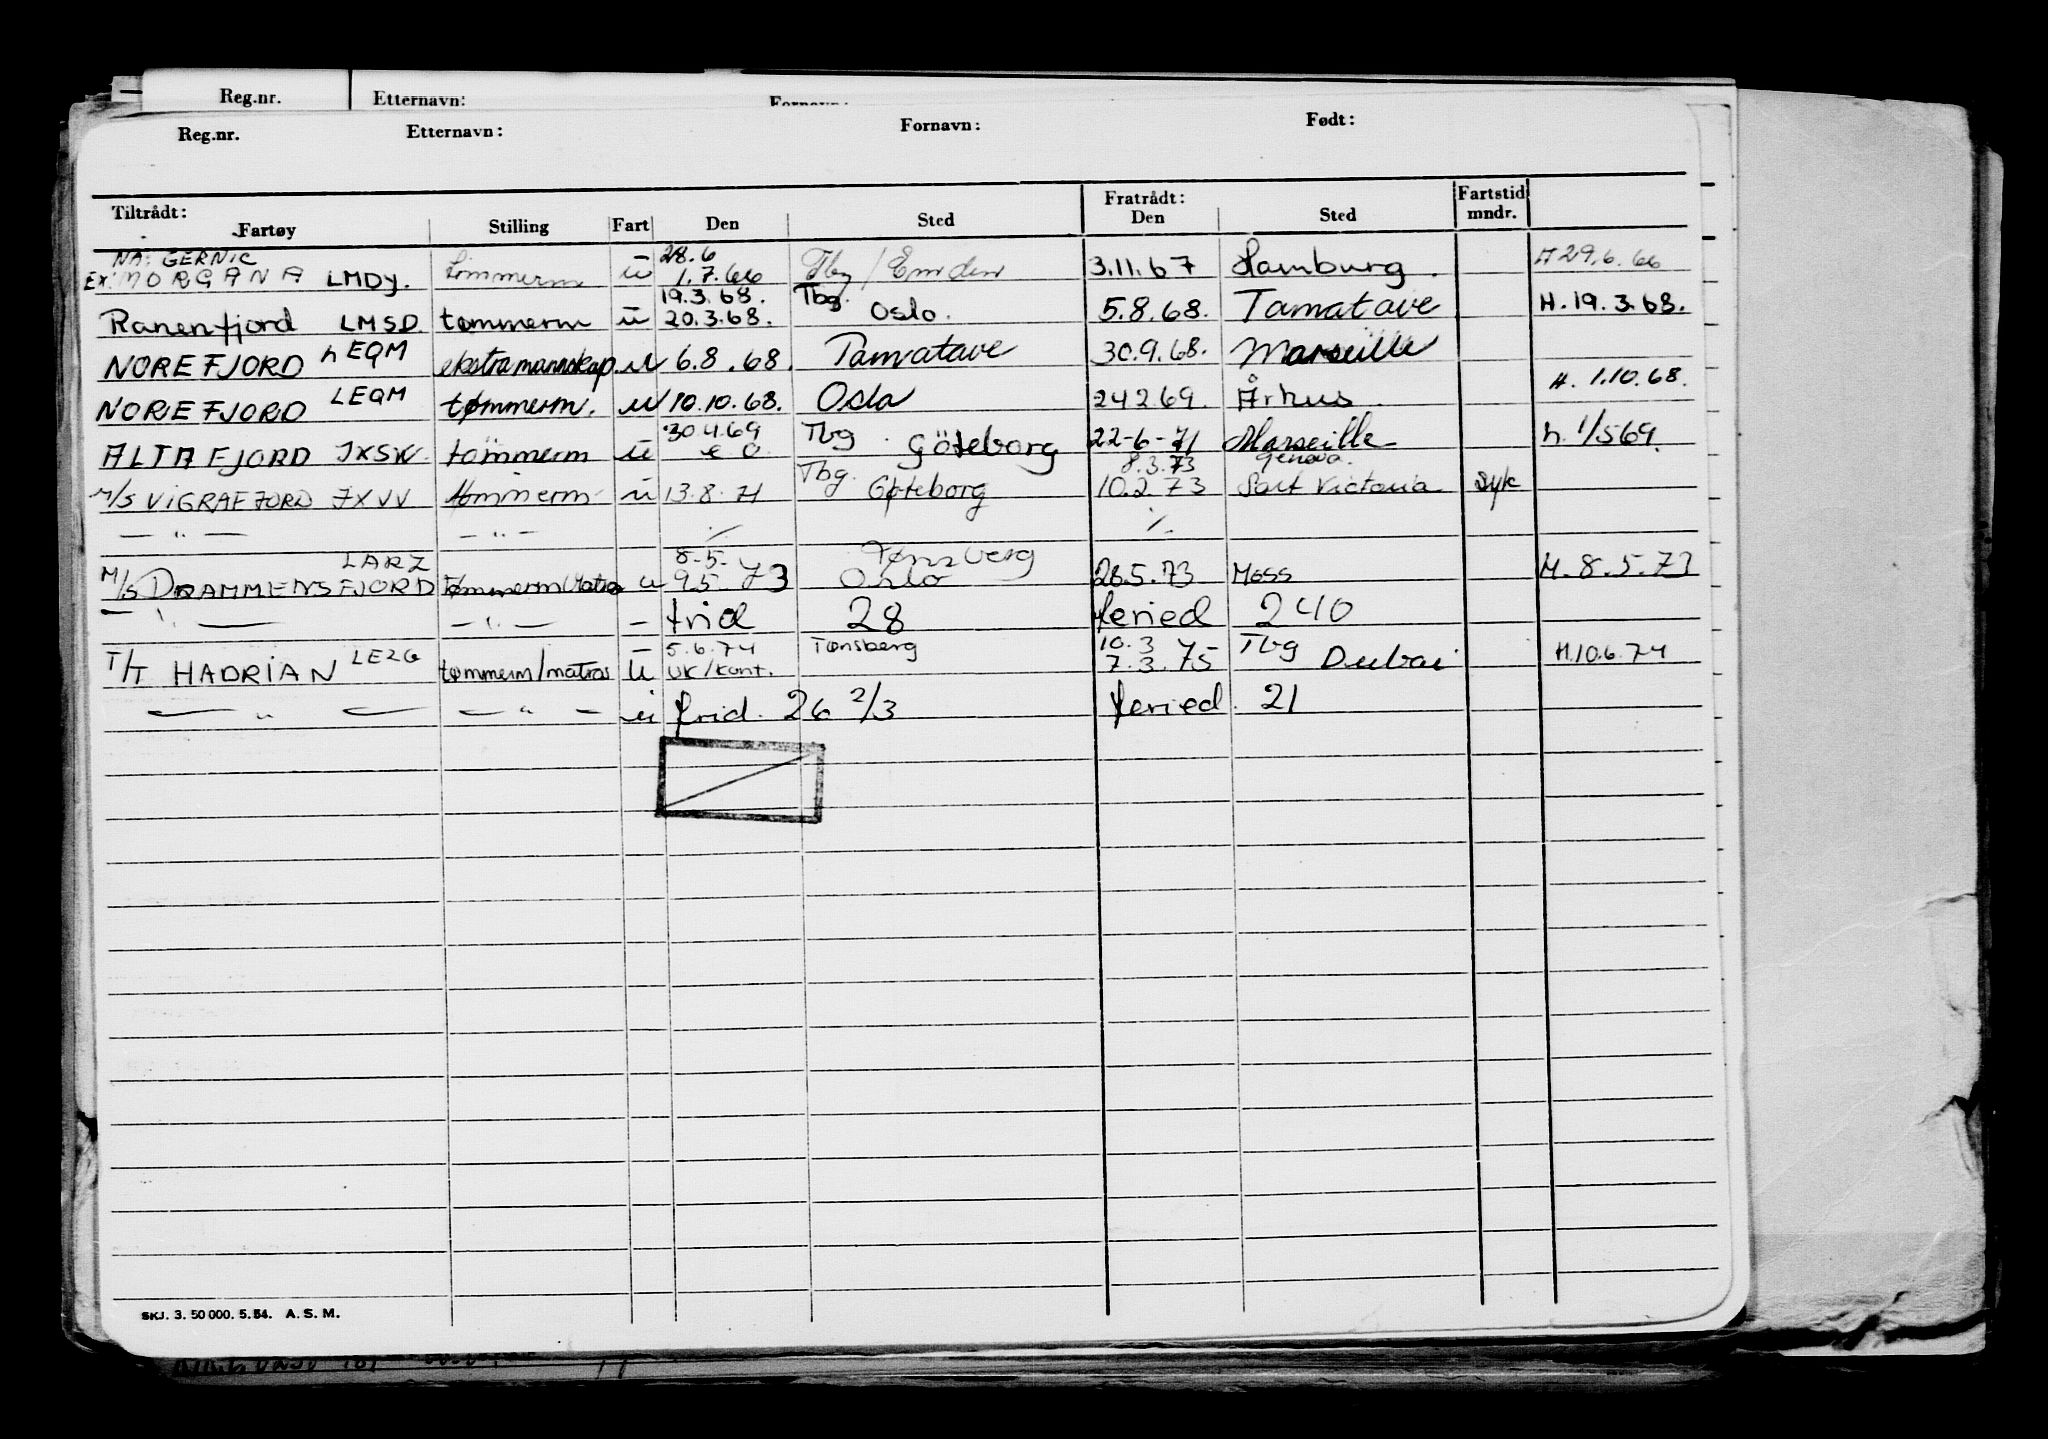 Reg.nr. Etternavn: Fornavn:
Reg.nr. Etternavn: Fornavn: Født:
Tiltrådt: Fratrådt: Fartstid
Fartøy Stilling Fart Den Sted Den Sted mndr.
NA: GERNIC 28.6
Ex: MORGANA LMDY. tømmerm u 1.7.66 Tbg / Emden 3.11.67 Hamburg. H 29.6.66
19.3.68. Tbg.
Ranenfjord LMSD. tømmerm u 20.3.68. Oslo. 5.8.68. Tamatave H. 19.3.68.
NOREFJORD LEQM ekstramannskap. u 6.8.68. Tamatave 30.9.68. Marseille
NOREFJORD LEQM tømmerm. u 10.10.68. Oslo 24 2 69. Århus H. 1.10.68.
30.4.69 Tbg.
ALTAFJORD JXSW. tömmerm u Göteborg 22-6-71 Marseille h. 1/5 69.
Tbg. 8.3.73 Genova.
M/S VIGRAFJORD JXVV tømmerm u 13.8.71 Gøteborg 10.2.73 Port Victoria Syk
— " — — " — ./. ./.
LARZ 8.5. Tønsberg
M/S DRAMMENSFJORD Tømmerm/Matros u 9.5.73 Oslo 28.5.73 Moss H. 8.5.73
— " — — " — — frid 28 feried 240
5.6.74 Tønsberg 10.3 Tbg
T/T HADRIAN LEZG tømmerm/matros u UK/Kont. 7.3.75 Dubai H.10.6.74
— " — — " — u frid. 26 2/3 feried. 21
SKJ. 3. 50 000. 5.54. A. S. M.